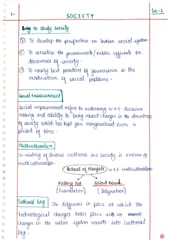 SOCIETY
Why to study Society
① To develop the perspective on Indian social system
② To sensitise the government / public officials on
dimensions of society.
③ To apply best practices of governance in the
eradication of social problems.
Social Empowerment
Social empowerment refers to autonomy w.r.t. decision
making and ability to bring about changes in the
of society which has kept you marginalised over a
period of time.
Multiculturalism
Co-existing of diverse cultures in a society in
multiculturalism
Melting Pot
Salad Bowl
(Assimilation)
(Integration)
Cultural lag
The difference in pace at which the
technological changes takes place with
changes in the value system results into Cultural
lag.